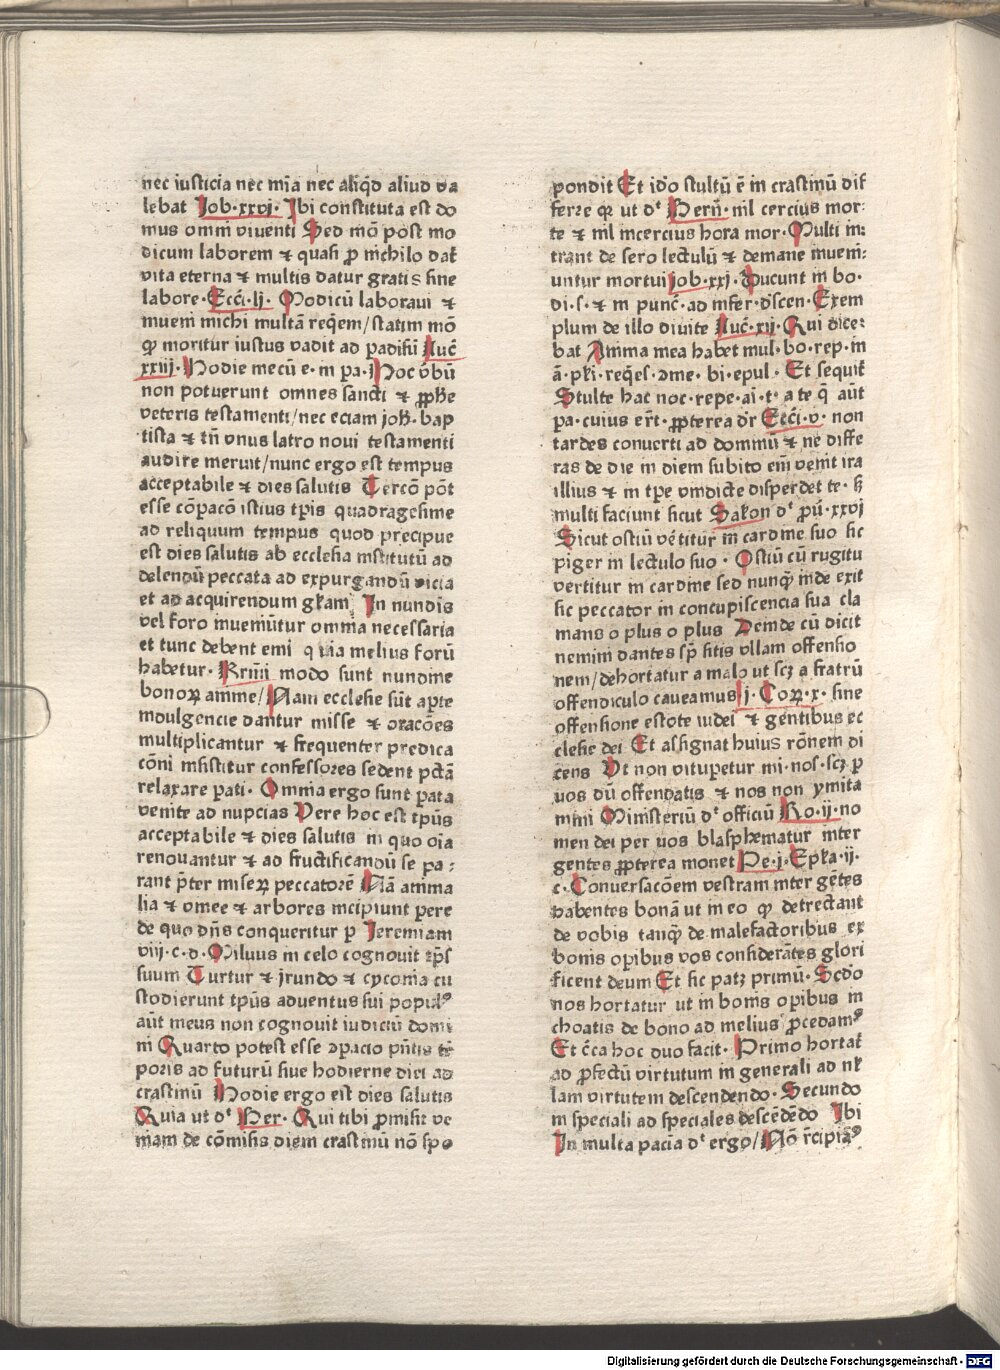 nec iusticia nec mīa nec aliq̇d aliud va
lebat Job·xxvj· Jbi constituta est do
mus omni viuenti Sed mō post mo
dicum laborem ⁊ quasi ꝓ nichilo daẗ
vita eterna ⁊ multis datur gratis sine
labore·Ecci·lj· Modicū laboraui ⁊
inueni michi multā reqͥem/statim mō
ꝙ moritur iustus vadit ad padisū Luc̄
xxiij· Hodie mecū e·in pa· Hoc ṽbū
non potuerunt omnes sancti ⁊ ꝓphe
veteris testamenti/nec eciam joh·bap
tista ⁊ tn̄ vnus latro noui testamenti
audire meruit/nunc ergo est tempus
acceptabile ⁊ dies salutis Tercō pōt
esse cōpacō istius tp̄is quadragesime
ad reliquum tempus quod precipue
est dies salutis ab ecclesia institutū ad
delendū peccata ad expurgandū vicia
et ad acquirendum gr̄am In nundis
vel foro inueniūtur omnia necessaria
et tunc debent emi q via melius forū
habetur· modo sunt nundine
bonoꝝ anime/Nam ecclesie sūt apte
indulgencie dantur misse ⁊ oracōes
multiplicantur ⁊ frequenter predica
cōni insistitur confessores sedent pctā
relaxare pati· Omnia ergo sunt pata
venite ad nupcias Vere hoc est tpūs
acceptabile ⁊ dies salutis in quo oīa
renouantur ⁊ ad fructificandū se pa:
rant p̄ter miseꝝ peccatorē Nā anima
lia ⁊ omēe ⁊ arbores incipiunt pere
de quo dn̄s conqueritur ꝑ Jeremiam
viij·c·d·Miluus in celo cognouit tp̄s
suum Turtur ⁊ jrundo ⁊ cyconia cu
stodierunt tpūs aduentus sui populꝰ
aūt meus non cognouit iudiciū domi
ni Quarto potest esse ↄpacio pn̄tis tē
poris ad futurū siue hodierne diei ad
crastinū Hodie ergo est dies salutis
Quia ut dͭ Ber· Qui tibi ꝓmisit ve
niam de cōmisis diem crastinū nō spo
pondit Et idō stultū ē in crastinū dif
ferre qꝛ ut dͭ Bern̄·nil cercius mor:
te ⁊ nil incercius hora mor·Multi in:
trant de sero lectulū ⁊ demane inueni:
untur mortui job·xxj·Ducunt in bo·
di·s·⁊ in punc̄·ad infer·dscen·Exem
plum de illo diuite Luc·xij·Qui dice:
bat Anima mea habet mul·bo·rep·in
ā·pli·reqͥes·ↄme·bi·epul· Et sequiẗ
Stulte hac noc·repe·ai·t·a te q̄ aūt
pa·cuius er̄t·ꝓpterea dr̄ Ecci·v· non
tardes conuerti ad dominū ⁊ ne diffe
ras de die in diem subito eni venit ira
illius ⁊ in tpe vindicte disperdet te·ß
multi faciunt sicut Salon dͭ ꝓū·xxvj
Sicut ostiū vētitur in cardine suo sic
piger in lectulo suo· Ostiū cū rugitu
vertitur in cardine sed nunqͣ inde exit
sic peccator in concupiscencia sua cla
mans o plus o plus Deinde cū dicit
nemini dantes sp̄ sitis vllam offensio
nem/dehortatur a malo ut scꝫ a fratrū
offendiculo caueamus j·Coꝝ·x· sine
offensione estote iudei ⁊ gentibus ec
clesie dei Et assignat huius rōnem di
cens Vt non vitupetur mi·nos·scꝫ ꝑ
uos dū offendatis ⁊ nos non ymita
mini Ministeriū dͭ officiū Ro·ij·no
men dei per uos blasphematur inter
gentes ꝓpterea monet Pe·j·Epl̄a·ij·
c·Conuersacōem vestram inter gētes
habentes bonā ut in eo ꝙ detrectant
de vobis tanqͣ de malefactoribus ex
bonis oꝑibus vos considerātes glori
ficent deum Et sic patꝫ primū·Secdo
nos hortatur ut in bonis opibus in
choatis de bono ad melius ꝓcedamꝰ
Et c̄ca hoc duo facit· Primo hortaẗ
ad ꝓfectū virtutum in generali ad nl̄
lam virtutem descendendo·Secundo
in speciali ad speciales descēdēdo Ibi
In multa pacia dͭ ergo/Nō r̄cipiaꝰ
Digitalisierung gefördert durch die Deutsche Forschungsgemeinschaft · DFG